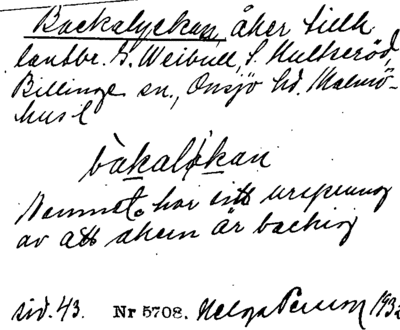 Backalyckan, åker tillh.
lantbr. G. Weibull, S. Hultseröd,
Billinge sn, Onsjö hd. Malmö-
hus l
bàkalỳkan
Namnet har sitt ursprung
av att åkern är backig
sid. 43. Nr 5708. Helga Persson 1932